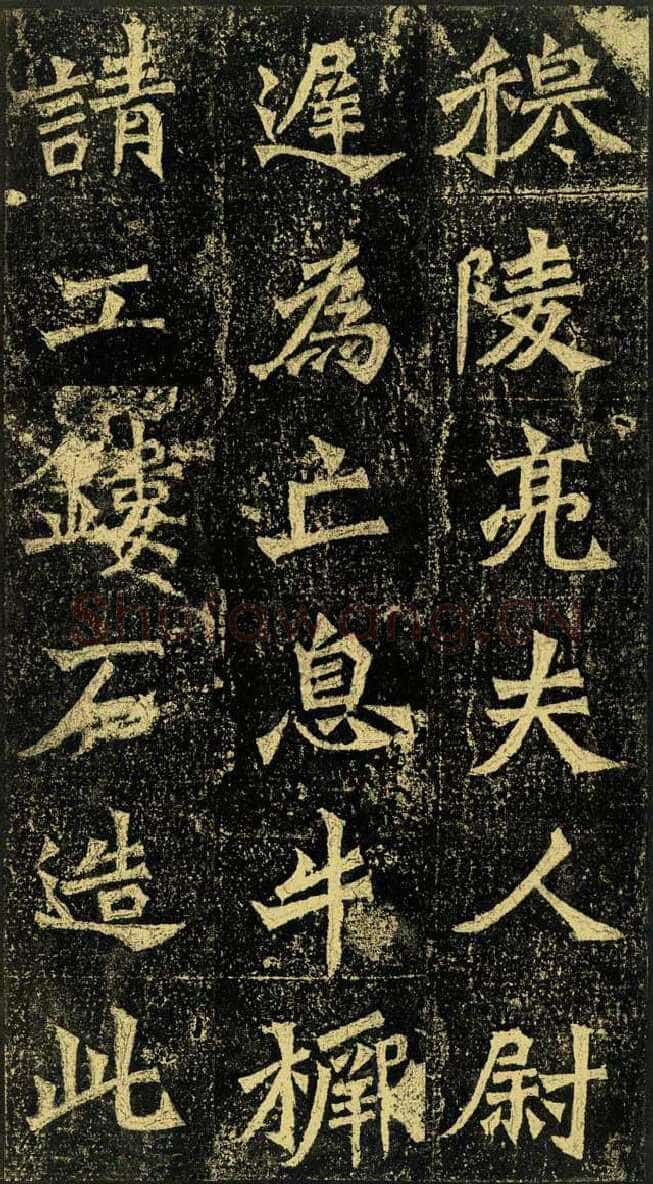 穆陵亮夫人尉
遲為亡息牛橛
請工鏤石造此
Shufawang.CN